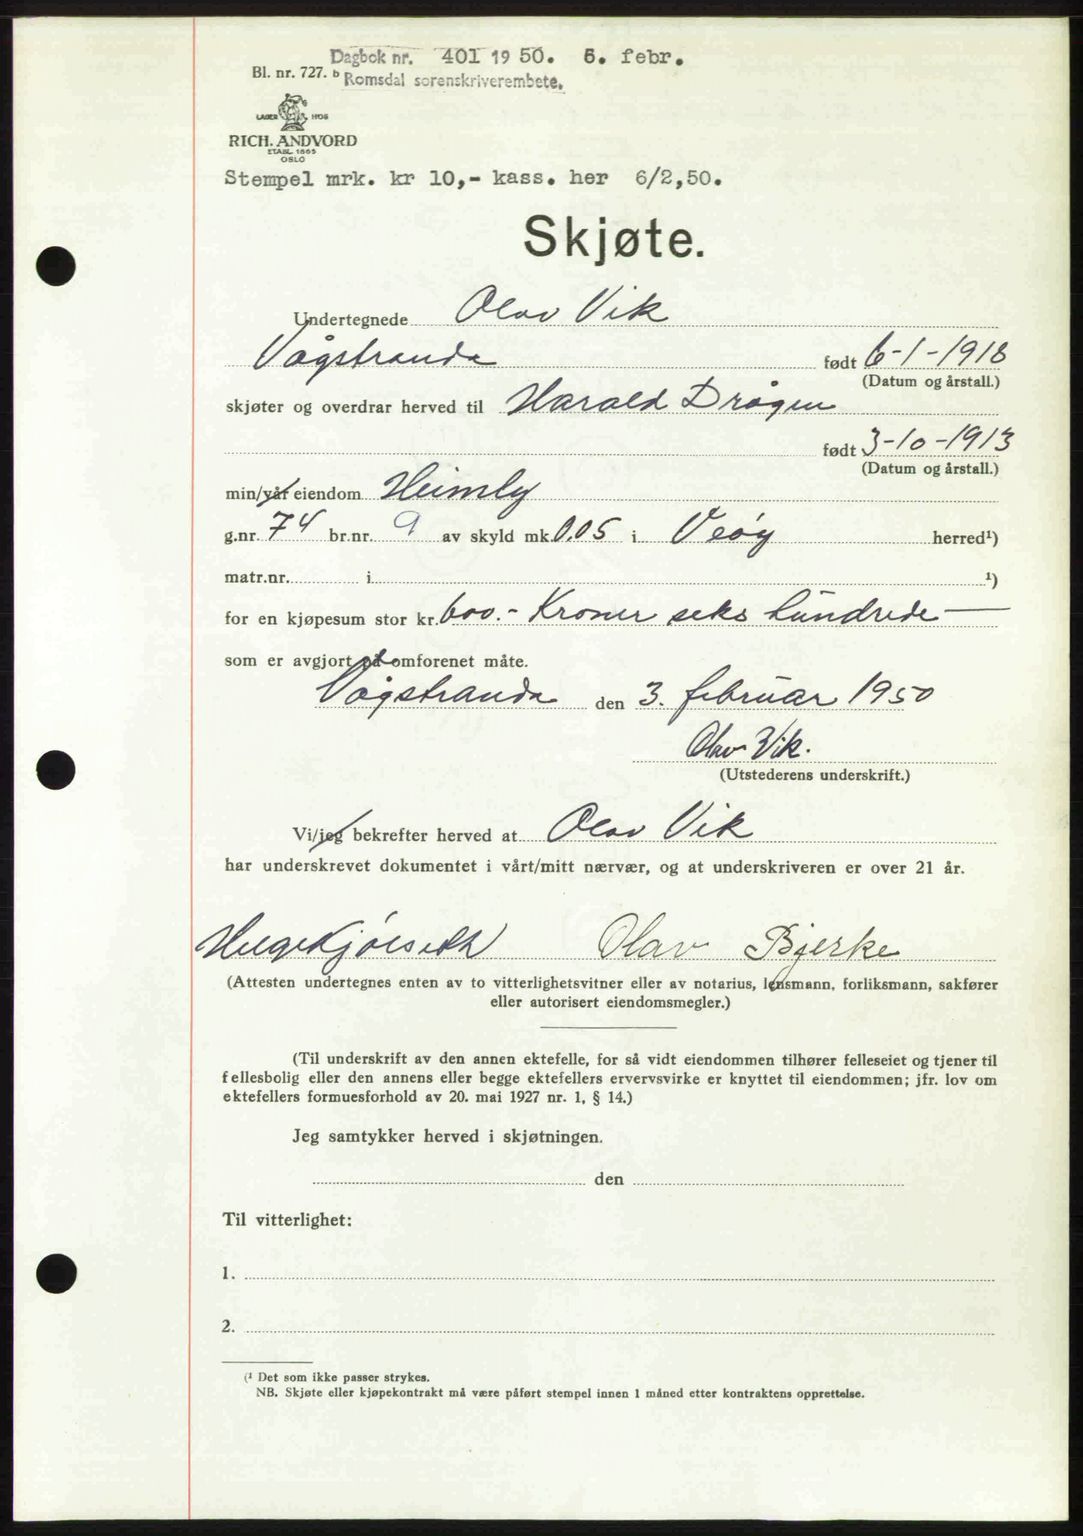 Dagbok nr. 401 1950. 6. febr.
Bl. nr. 727. b Romsdal sorenskriverembete.
LAGER HOS
RICH. ANDVORD
ETABL. 1865
OSLO
Stempel mrk. kr 10,- kass. her 6/2,50.
Skjøte.
Undertegnede Olav Vik
Vågstranda født 6-1-1918
(Datum og årstall.)
skjøter og overdrar herved til Harald Drågen
født 3-10-1913
(Datum og årstall.)
min/vår eiendom Heimly
g.nr. 74 br.nr. 9 av skyld mk. 0.05 i Veøy herred¹)
matr.nr. i ¹)
for en kjøpesum stor kr. 600.- Kroner seks hundrede
som er avgjort på omforenet måte.
Vågstranda den 3. februar 1950
Olav Vik.
(Utstederens underskrift.)
Vi/jeg bekrefter herved at Olav Vik
har underskrevet dokumentet i vårt/mitt nærvær, og at underskriveren er over 21 år.
Helge Kjølseth Olav Bjerke
(Attesten undertegnes enten av to vitterlighetsvitner eller av notarius, lensmann, forliksmann, sakfører
eller autorisert eiendomsmegler.)
(Til underskrift av den annen ektefelle, for så vidt eiendommen tilhører felleseiet og tjener til
fellesbolig eller den annens eller begge ektefellers ervervsvirke er knyttet til eiendommen; jfr. lov om
ektefellers formuesforhold av 20. mai 1927 nr. 1, § 14.)
Jeg samtykker herved i skjøtningen.
den
Til vitterlighet:
1.
2.
(¹ Det som ikke passer strykes.
NB. Skjøte eller kjøpekontrakt må være påført stempel innen 1 måned etter kontraktens opprettelse.